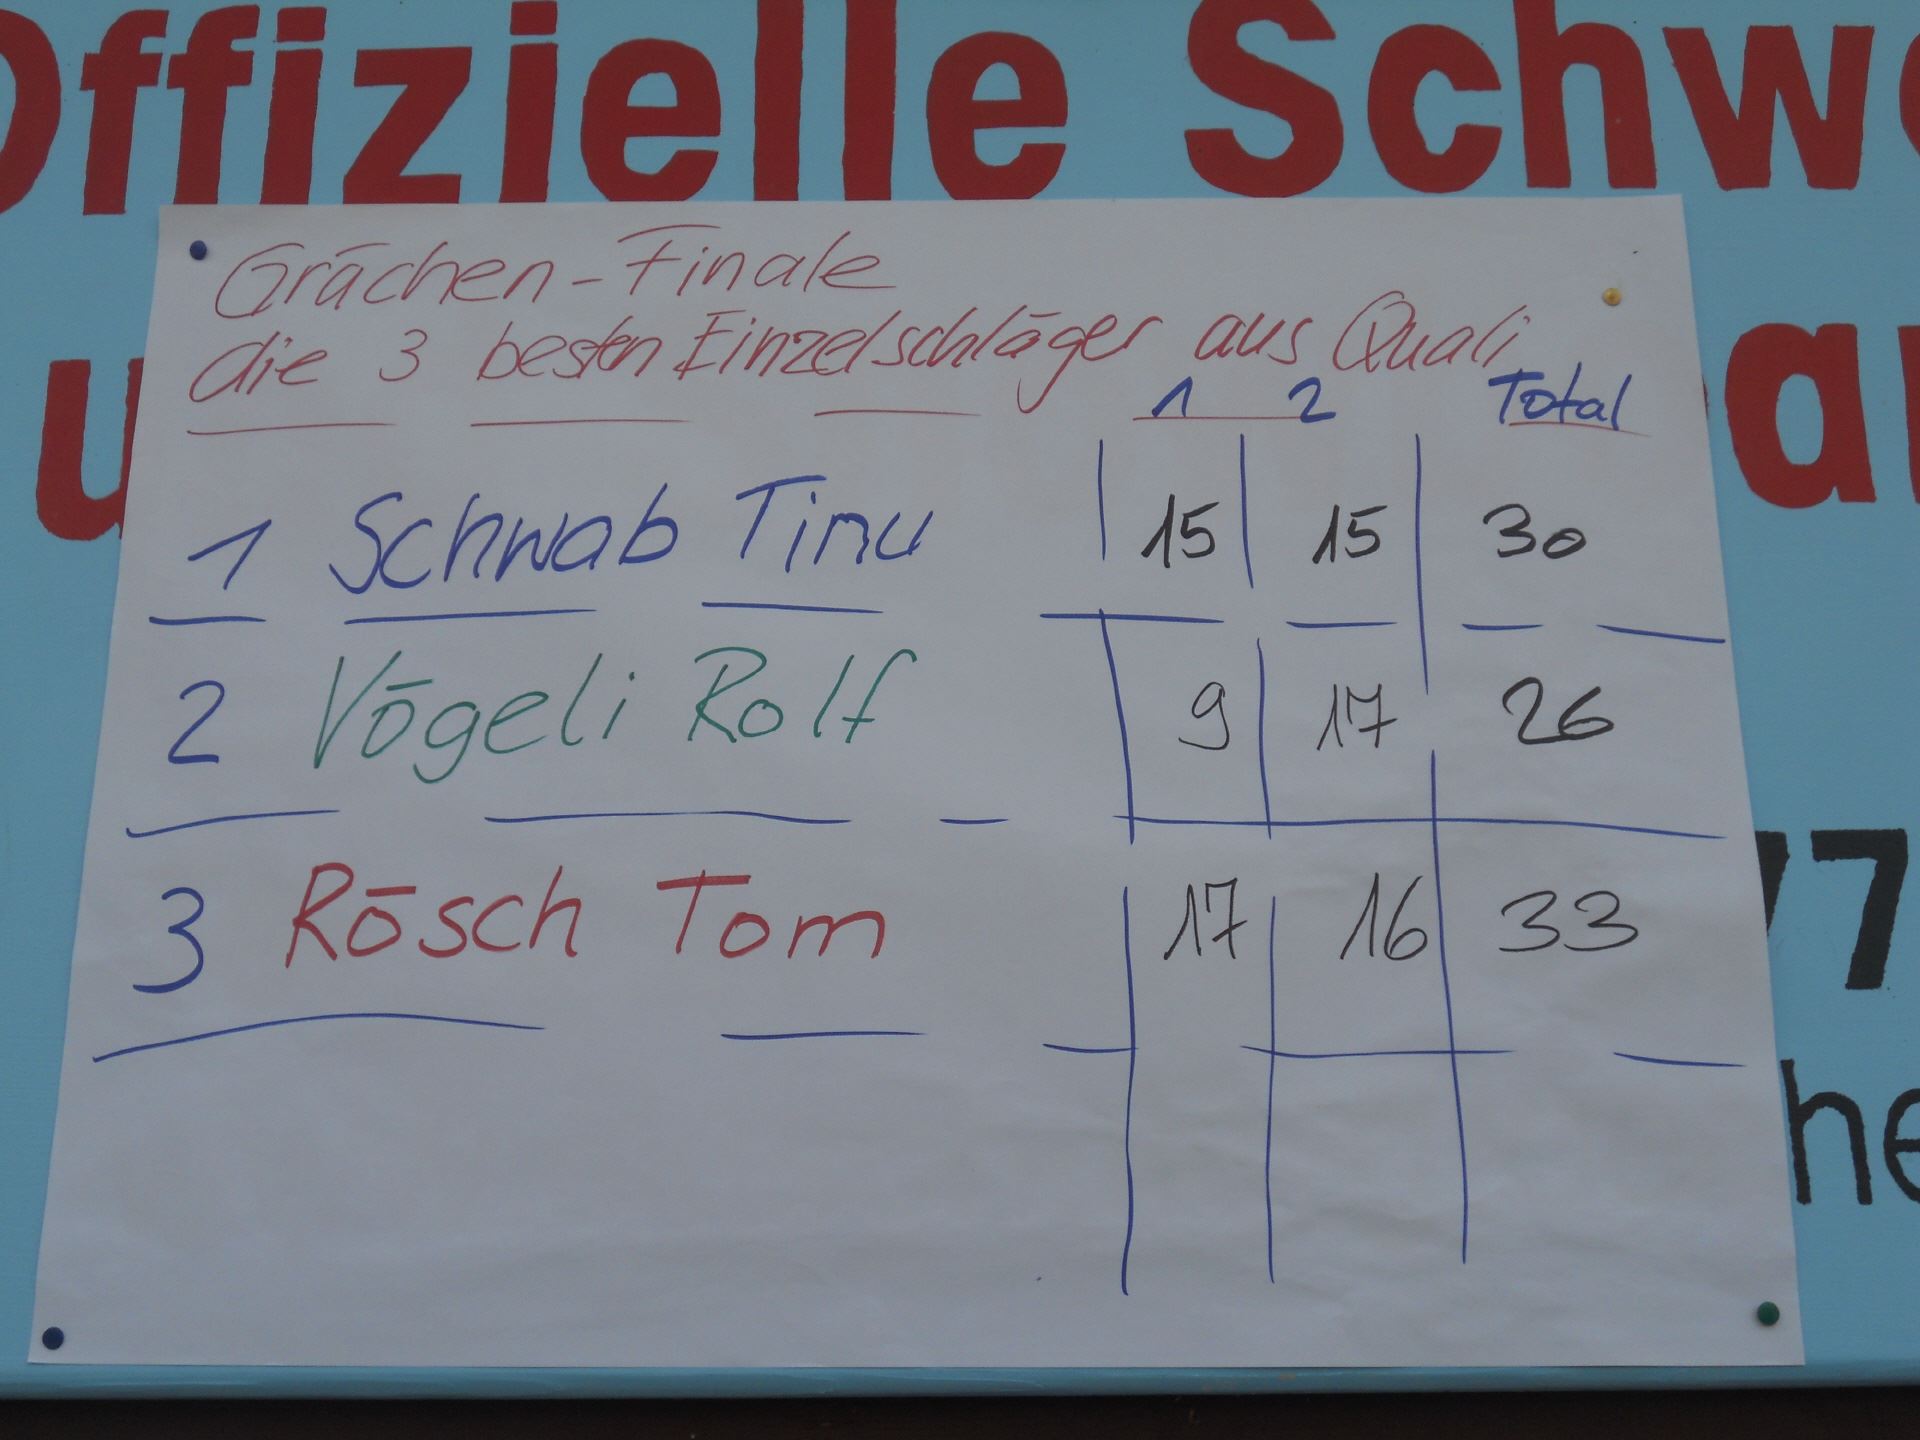 Offizielle Schw
u
Grächen-Finale
die 3 besten Einzelschläger aus Quali
1 2 Total
1 Schwab Tinu 15 15 30
2 Vögeli Rolf 9 17 26
3 Rösch Tom 17 16 33
77
he